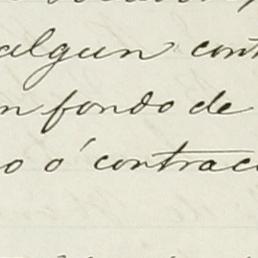 algun cont
n fondo de
o ó contrac